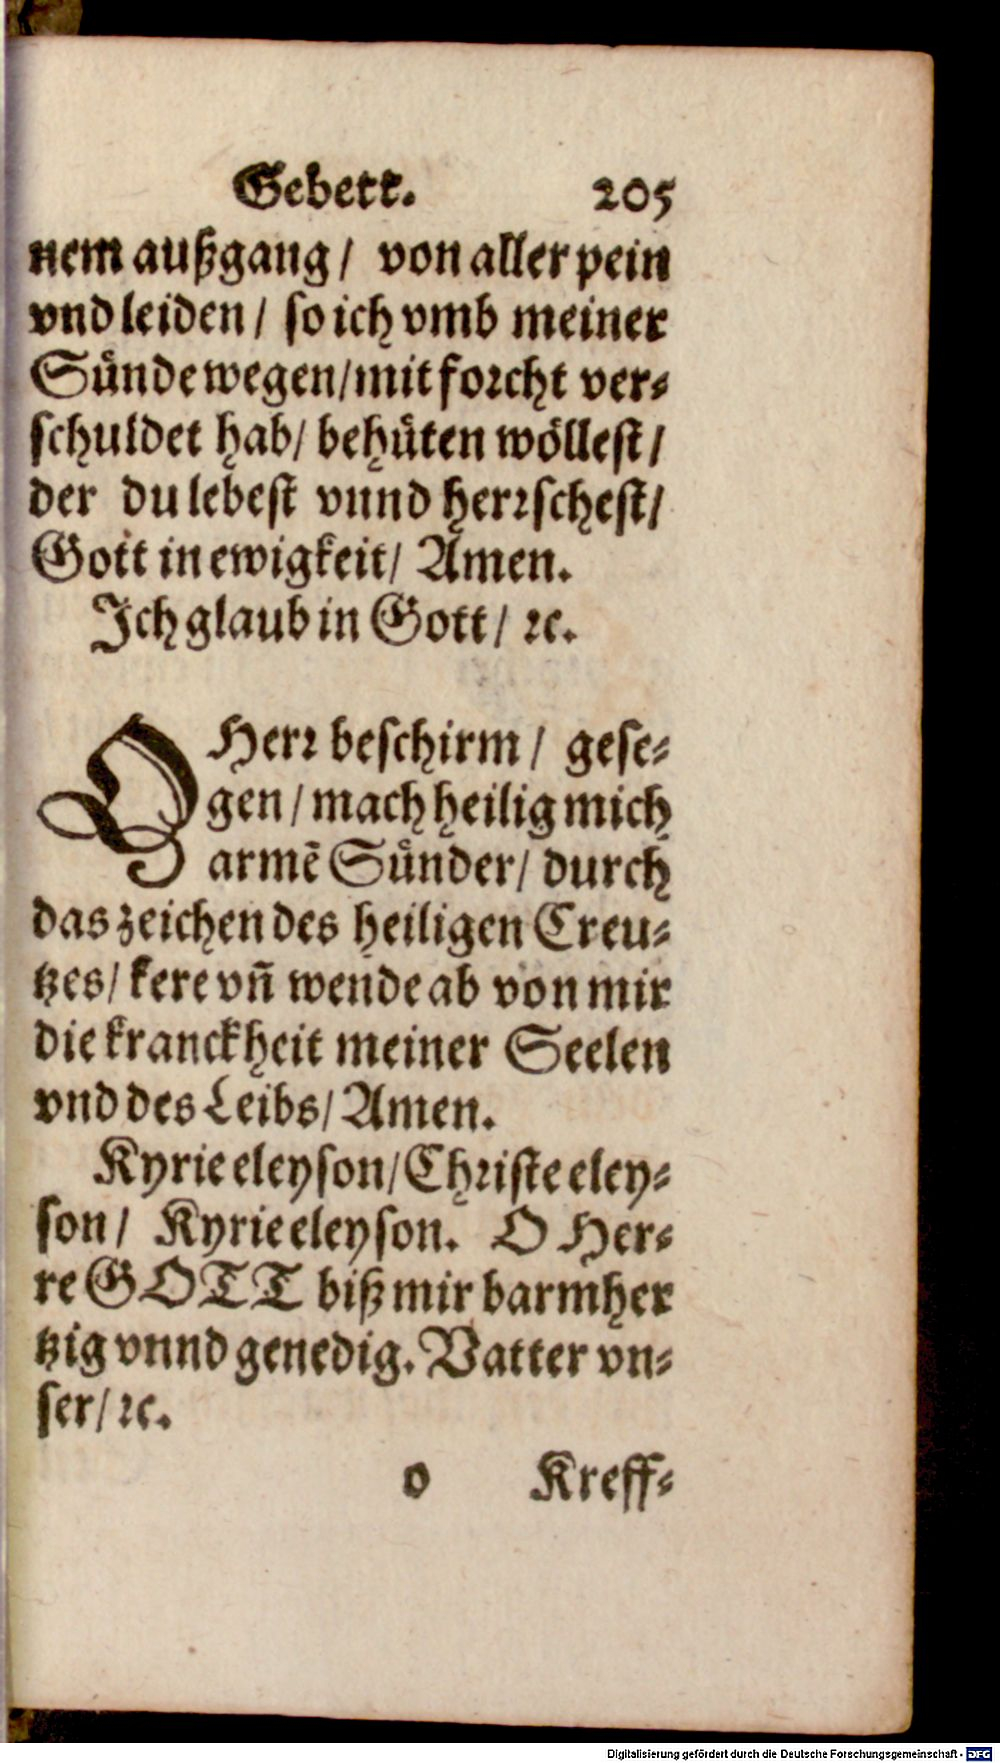 Gebett. 205
nem außgang/ von aller pein
vnd leiden/ so ich vmb meiner
Sünde wegen/mit forcht ver⸗
schuldet hab/ behüten wöllest/
der du lebest vnnd herrschest/
Gott in ewigkeit/ Amen.
Ich glaub in Gott/ ꝛc.
O Herr beschirm/ gese⸗
gen/ mach heilig mich
armē Sünder/ durch
das zeichen des heiligen Creu⸗
tzes/ kere vñ wende ab von mir
die kranckheit meiner Seelen
vnd des Leibs/ Amen.
Kyrie eleyson/Christe eley⸗
son/ Kyrie eleyson. O Her⸗
re GOTT biß mir barmher
tzig vnnd genedig. Vatter vn⸗
ser/ ꝛc.
o Kreff⸗
Digitalisierung gefördert durch die Deutsche Forschungsgemeinschaft - DFG